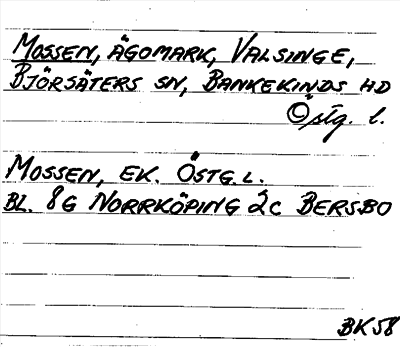 MOSSEN, ÄGOMARK, VALSINGE,
BJÖRSÄTERS SN, BANKEKINDS HD
Östg. l.
MOSSEN, EK. ÖSTG. L.
BL. 8G NORRKÖPING 2C BERSBO
BK58